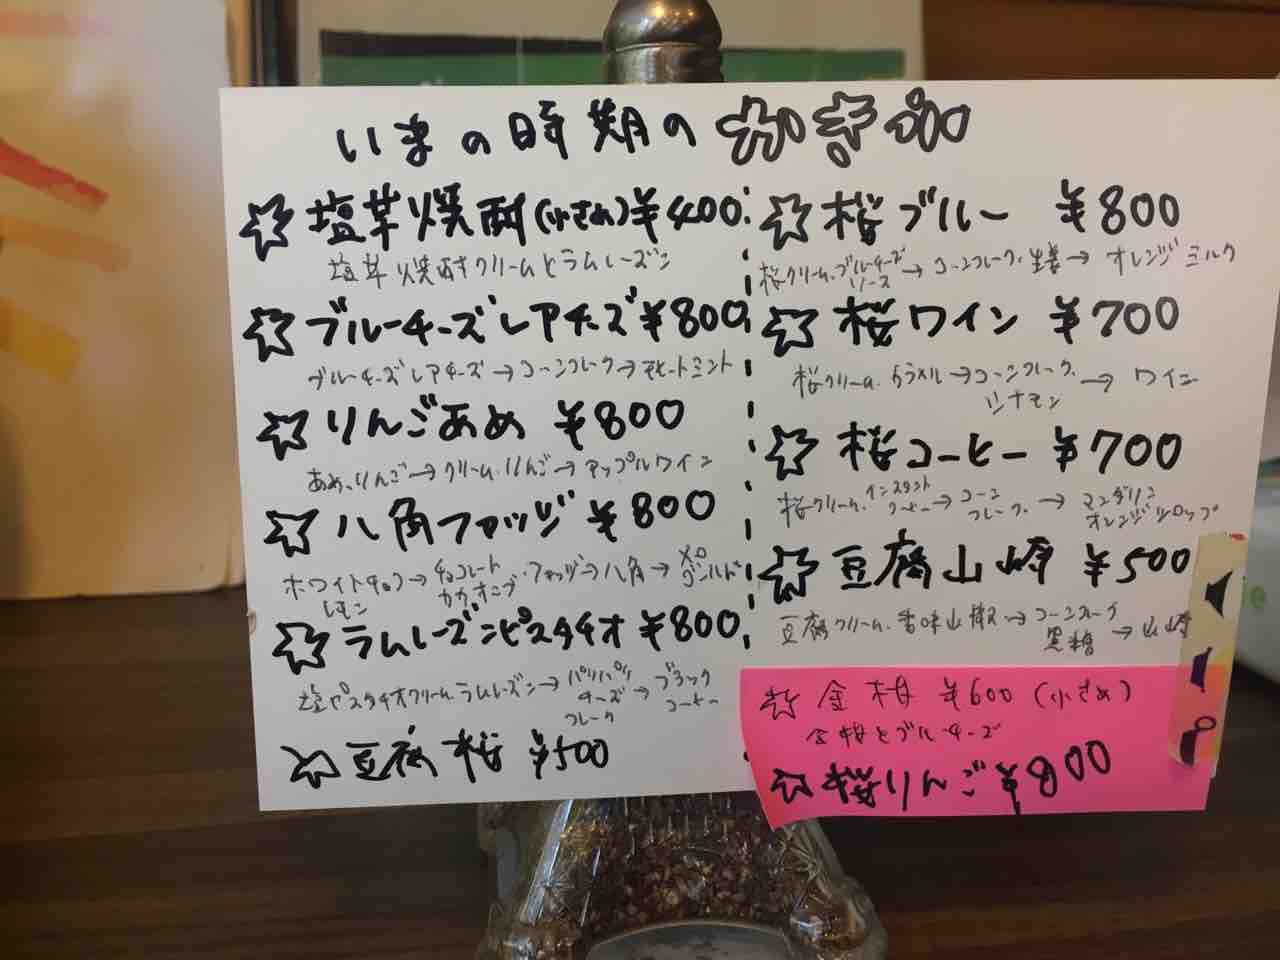 いまの時期のかき氷
塩草焼酎(小さめ)¥400
塩草焼酎クリームとラムレーズン
ブルーチーズレアチーズ¥800
ブルーチーズレアチーズ→コーンフレーク→モヒートミント
りんごあめ ¥800
あめ、りんご→クリーム、りんご→アップルワイン
八角ファッジ ¥800
ホワイトチョコ→チョコレート・ファッジ→八角→
レモン カカオニブ ゴールド
ラムレーズンピスタチオ ¥800
塩ピスタチオクリーム、ラムレーズン→パリパリ→ブラック
チーズ コーヒー
フレーク
豆腐桜 ¥500
桜ブルー ¥800
桜クリーム、ブルーチーズ→コーンフレーク、生姜→オレンジミルク
ソース
桜ワイン ¥700
桜クリーム、カラメル→コーンフレーク、→ワイン
シナモン
桜コーヒー ¥700
桜クリーム、インスタント→コーン→マンダリン
コーヒー フレーク、 オレンジシロップ
豆腐山崎 ¥500
豆腐クリーム、香味山椒→コーンフレーク→山崎
黒糖
金柑 ¥600(小さめ)
金柑とブルーチーズ
桜りんご¥800